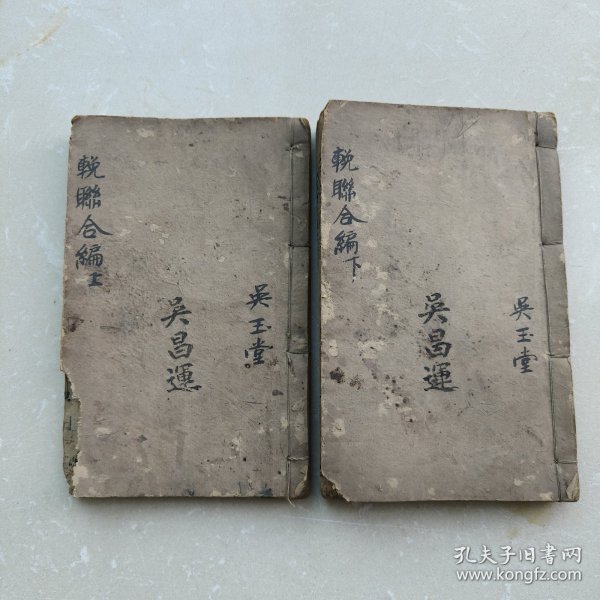 輓聯合編上
吳昌運
吳玉堂
輓聯合編下
吳昌運
吳玉堂
孔夫子旧書网
www.kongfz.com